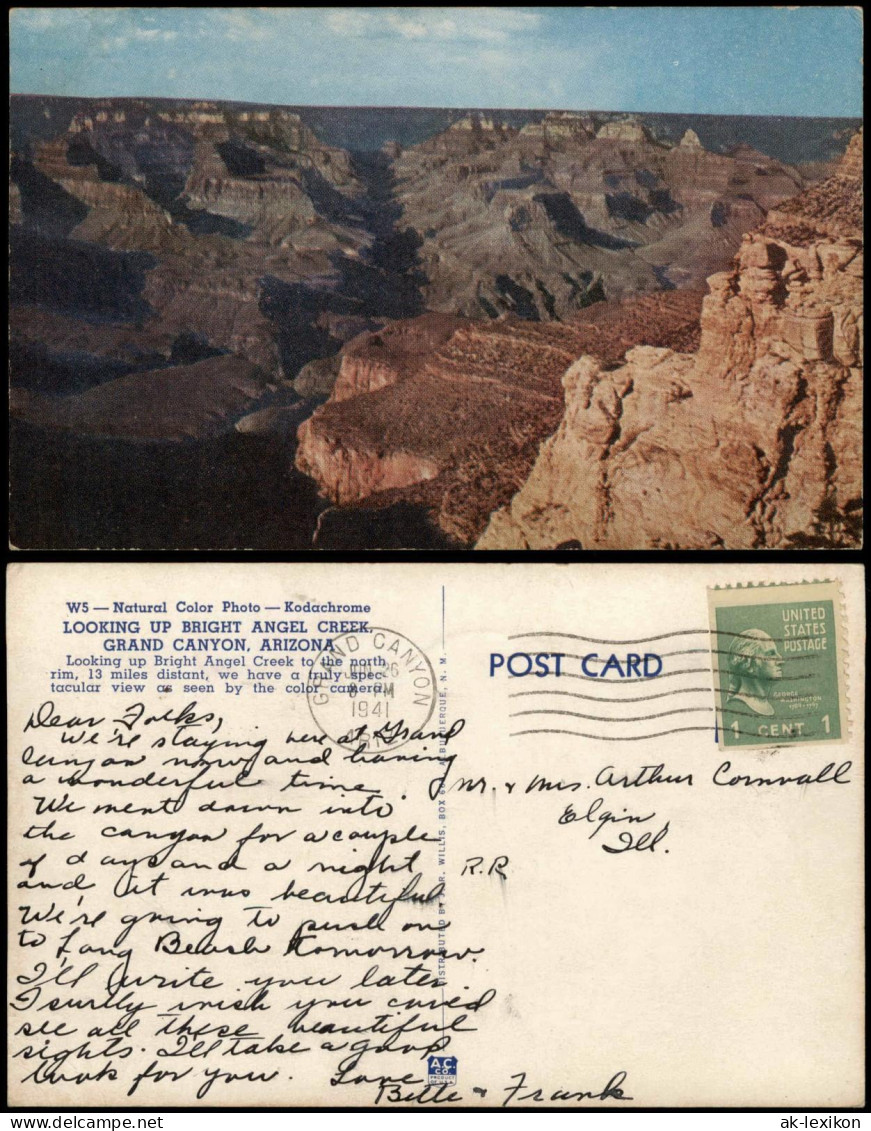 W5 — Natural Color Photo — Kodachrome
LOOKING UP BRIGHT ANGEL CREEK,
GRAND CANYON, ARIZONA
Looking up Bright Angel Creek to the north
rim, 13 miles distant, we have a truly spec-
tacular view as seen by the color camera.
GRAND CANYON
JUN 26
PM
1941
ARIZ
POST CARD
UNITED
STATES
POSTAGE
GEORGE
WASHINGTON
1 CENT 1
Dear Folks,
We're staying here at Grand
Canyon now and having
a wonderful time.
We went down into
the canyon for a couple
of days and a night
and it was beautiful
We're going to push on
to Long Beach tomorrow.
I'll write you later
I surely wish you could
see all these beautiful
sights. I'll take a good
look for you. Love
Bette & Frank
Mr. & Mrs. Arthur Cornwall
Elgin,
Ill.
R.R
DISTRIBUTED BY J. R. WILLIS, BOX ALBUQUERQUE, N. M.
A.C.
CO.
ak-lexikon
www.delcampe.net